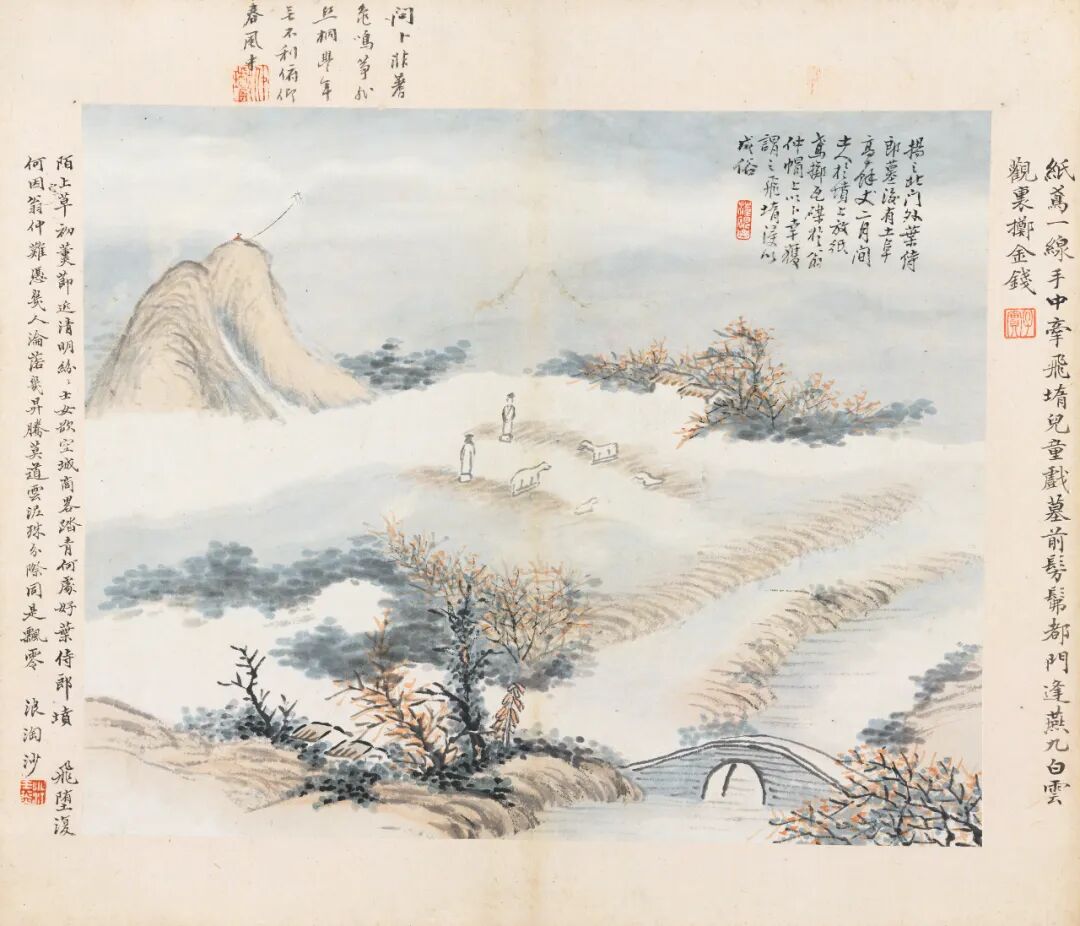 紙鳶一線手中牽飛堶兒童戲墓前髣髴都門逢燕九白雲
觀裏擲金錢
揚之北門外葉侍
郎墓後有土阜
高餘丈二月間
士人於墳上放紙
鳶擲瓦磚於翁
仲帽上以卜幸獲
謂之飛堶浸以
成俗
問卜非蓍
龜鳴箏
絲桐豐年
無不利俯仰
春風中
陌上草初薰節近清明紛〻士女欲空城商畧踏青何處好葉侍郎墳 飛堕復
何因翁仲難憑幾人淪落幾昇騰莫道雲泥殊分際同是飄零 浪淘沙